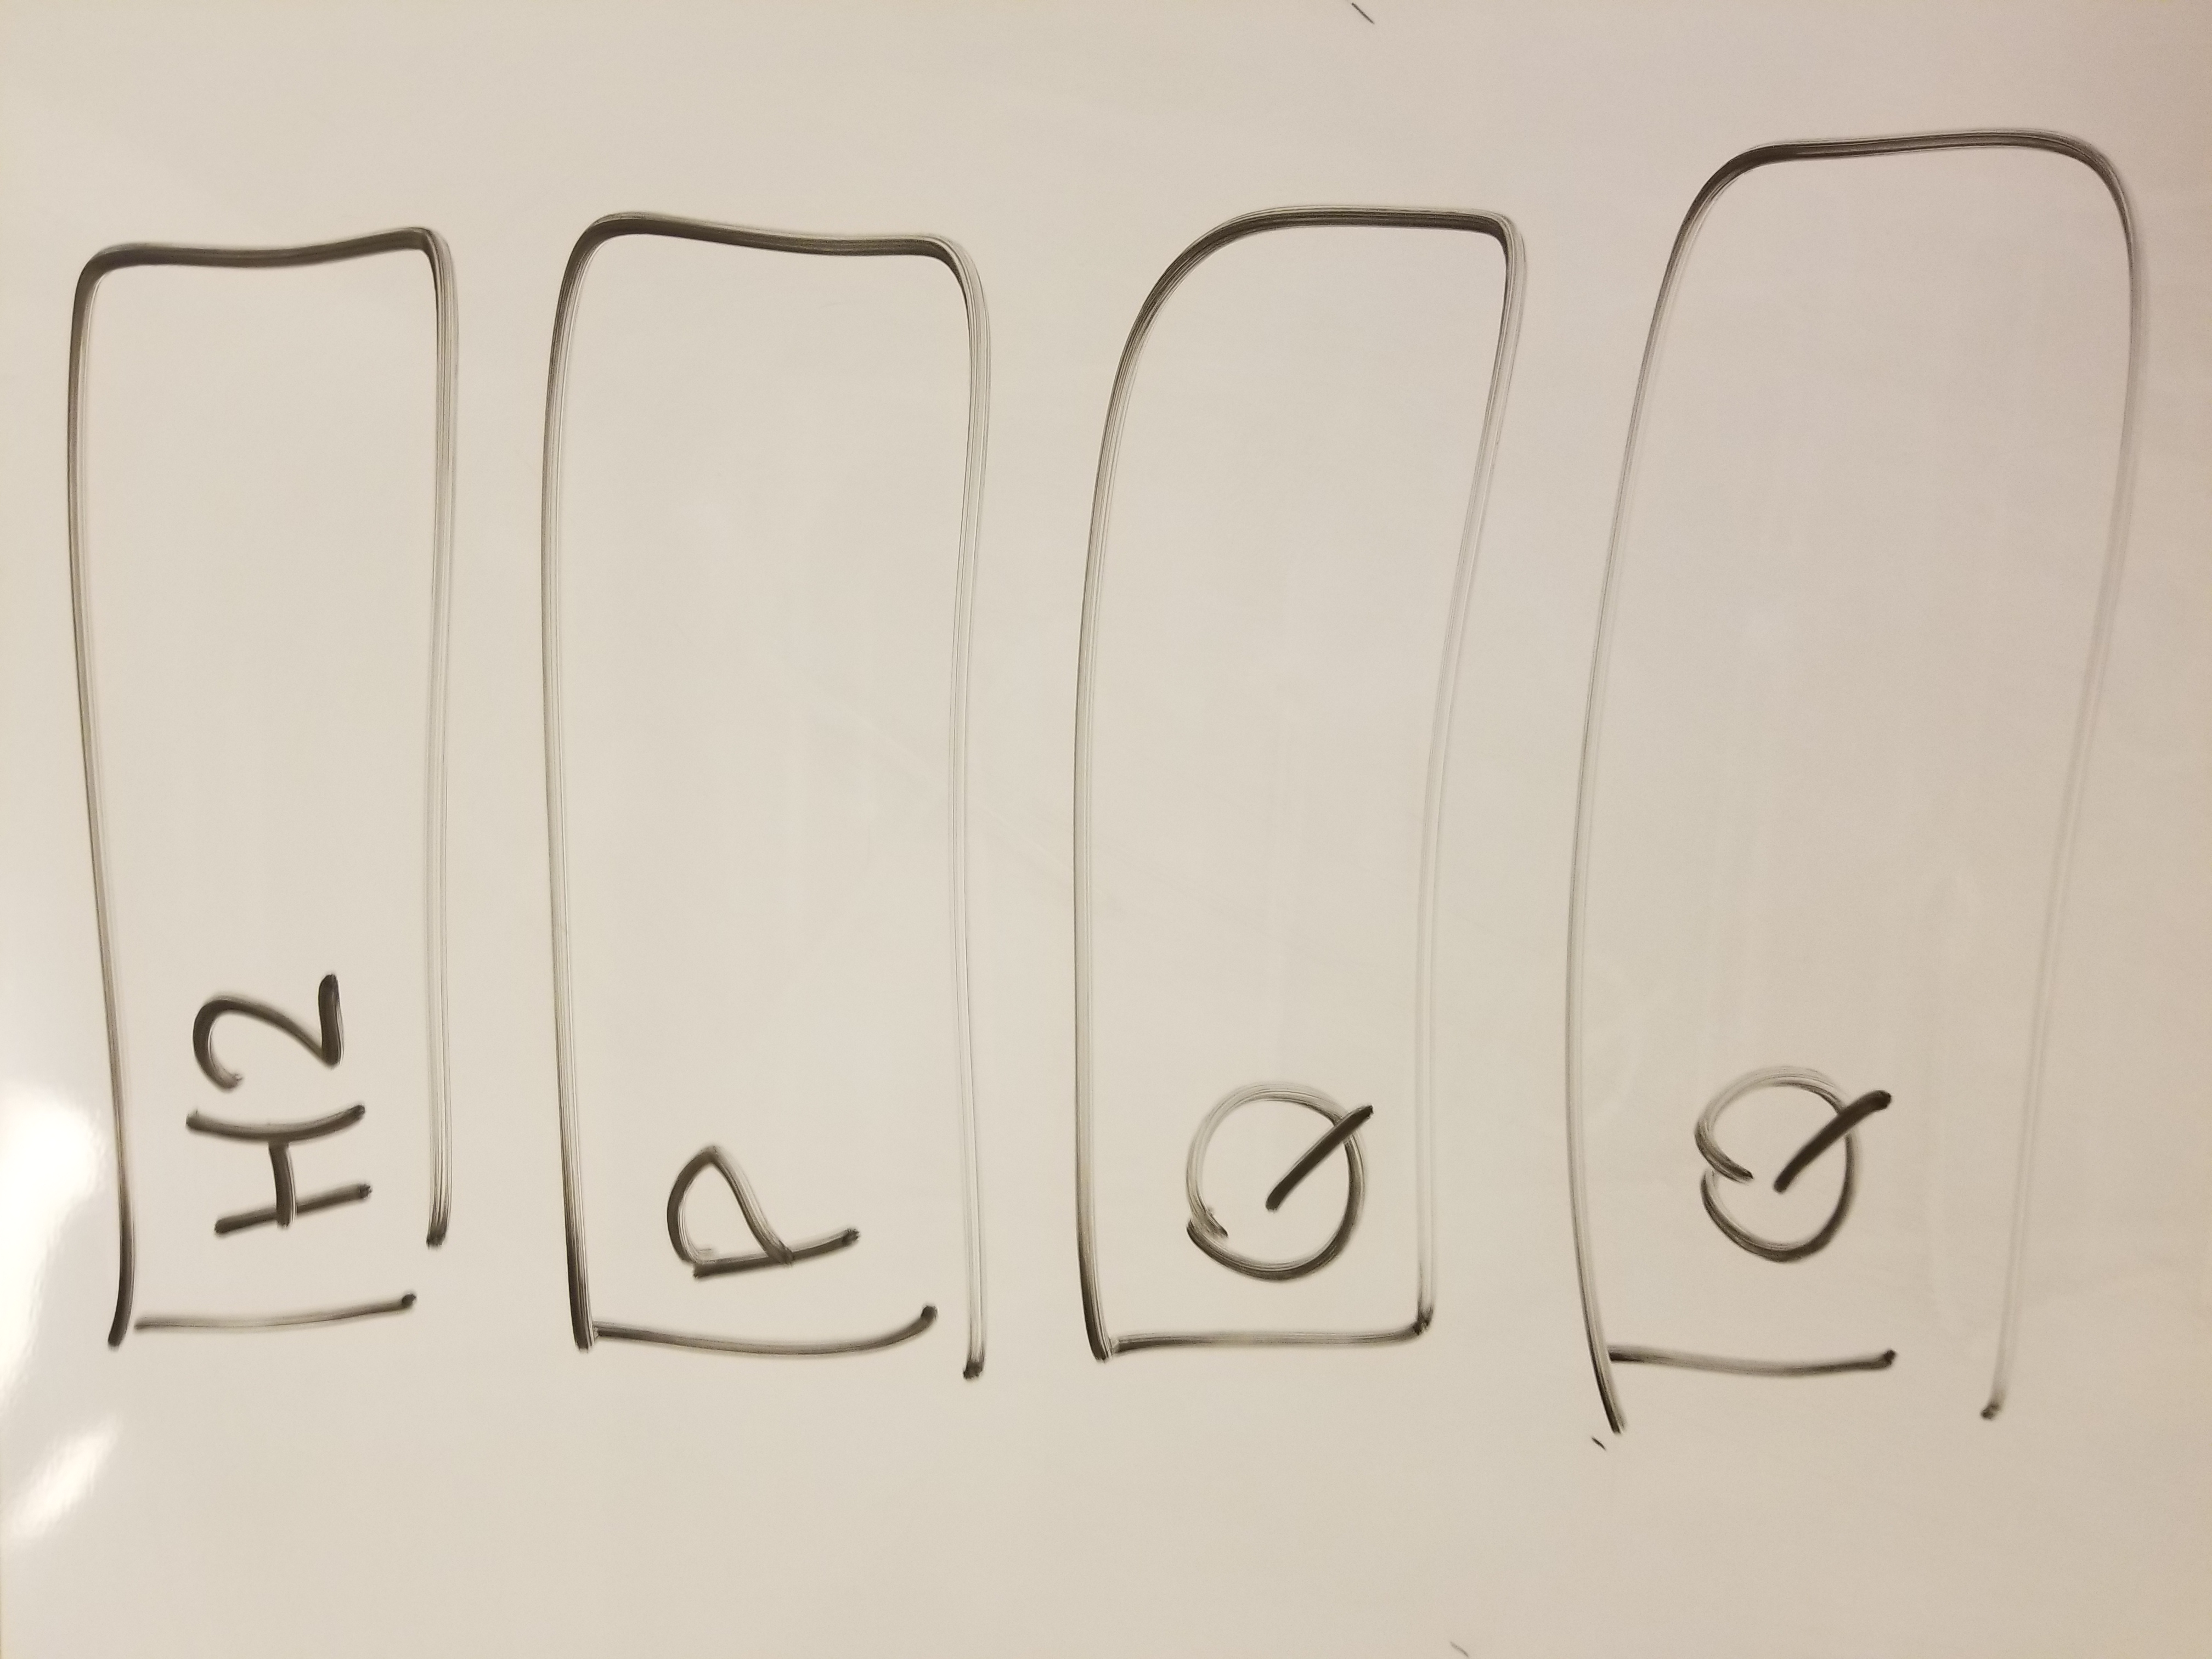 H2
P
Q
Q